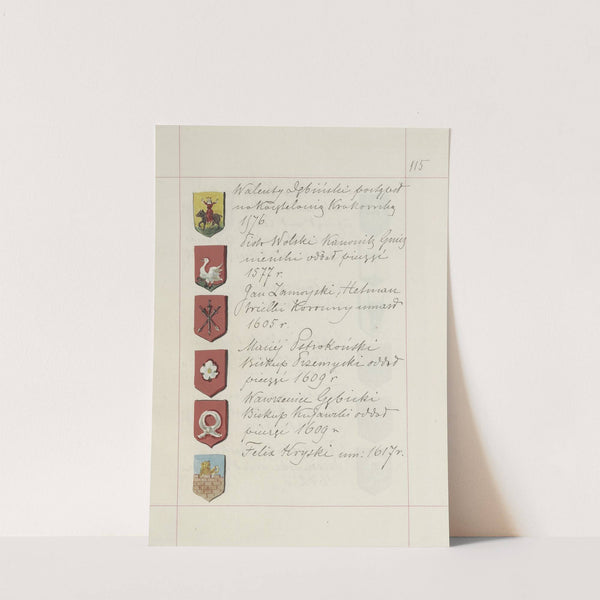 115
Walenty Dębiński postąpił
na Kasztelanią Krakowską
1576
Piotr Wolski Kanonik Gnieź
nieński oddał pieczęć
1577 r.
Jan Zamoyski, Hetman
Wielki Koronny umarł
1605 r.
Maciej Pstrokoński
Biskup Przemyski oddał
pieczęć 1609 r
Wawrzeniec Gębicki
Biskup Kujawski oddał
pieczęć 1609 r
Felix Kryski um: 1617 r.